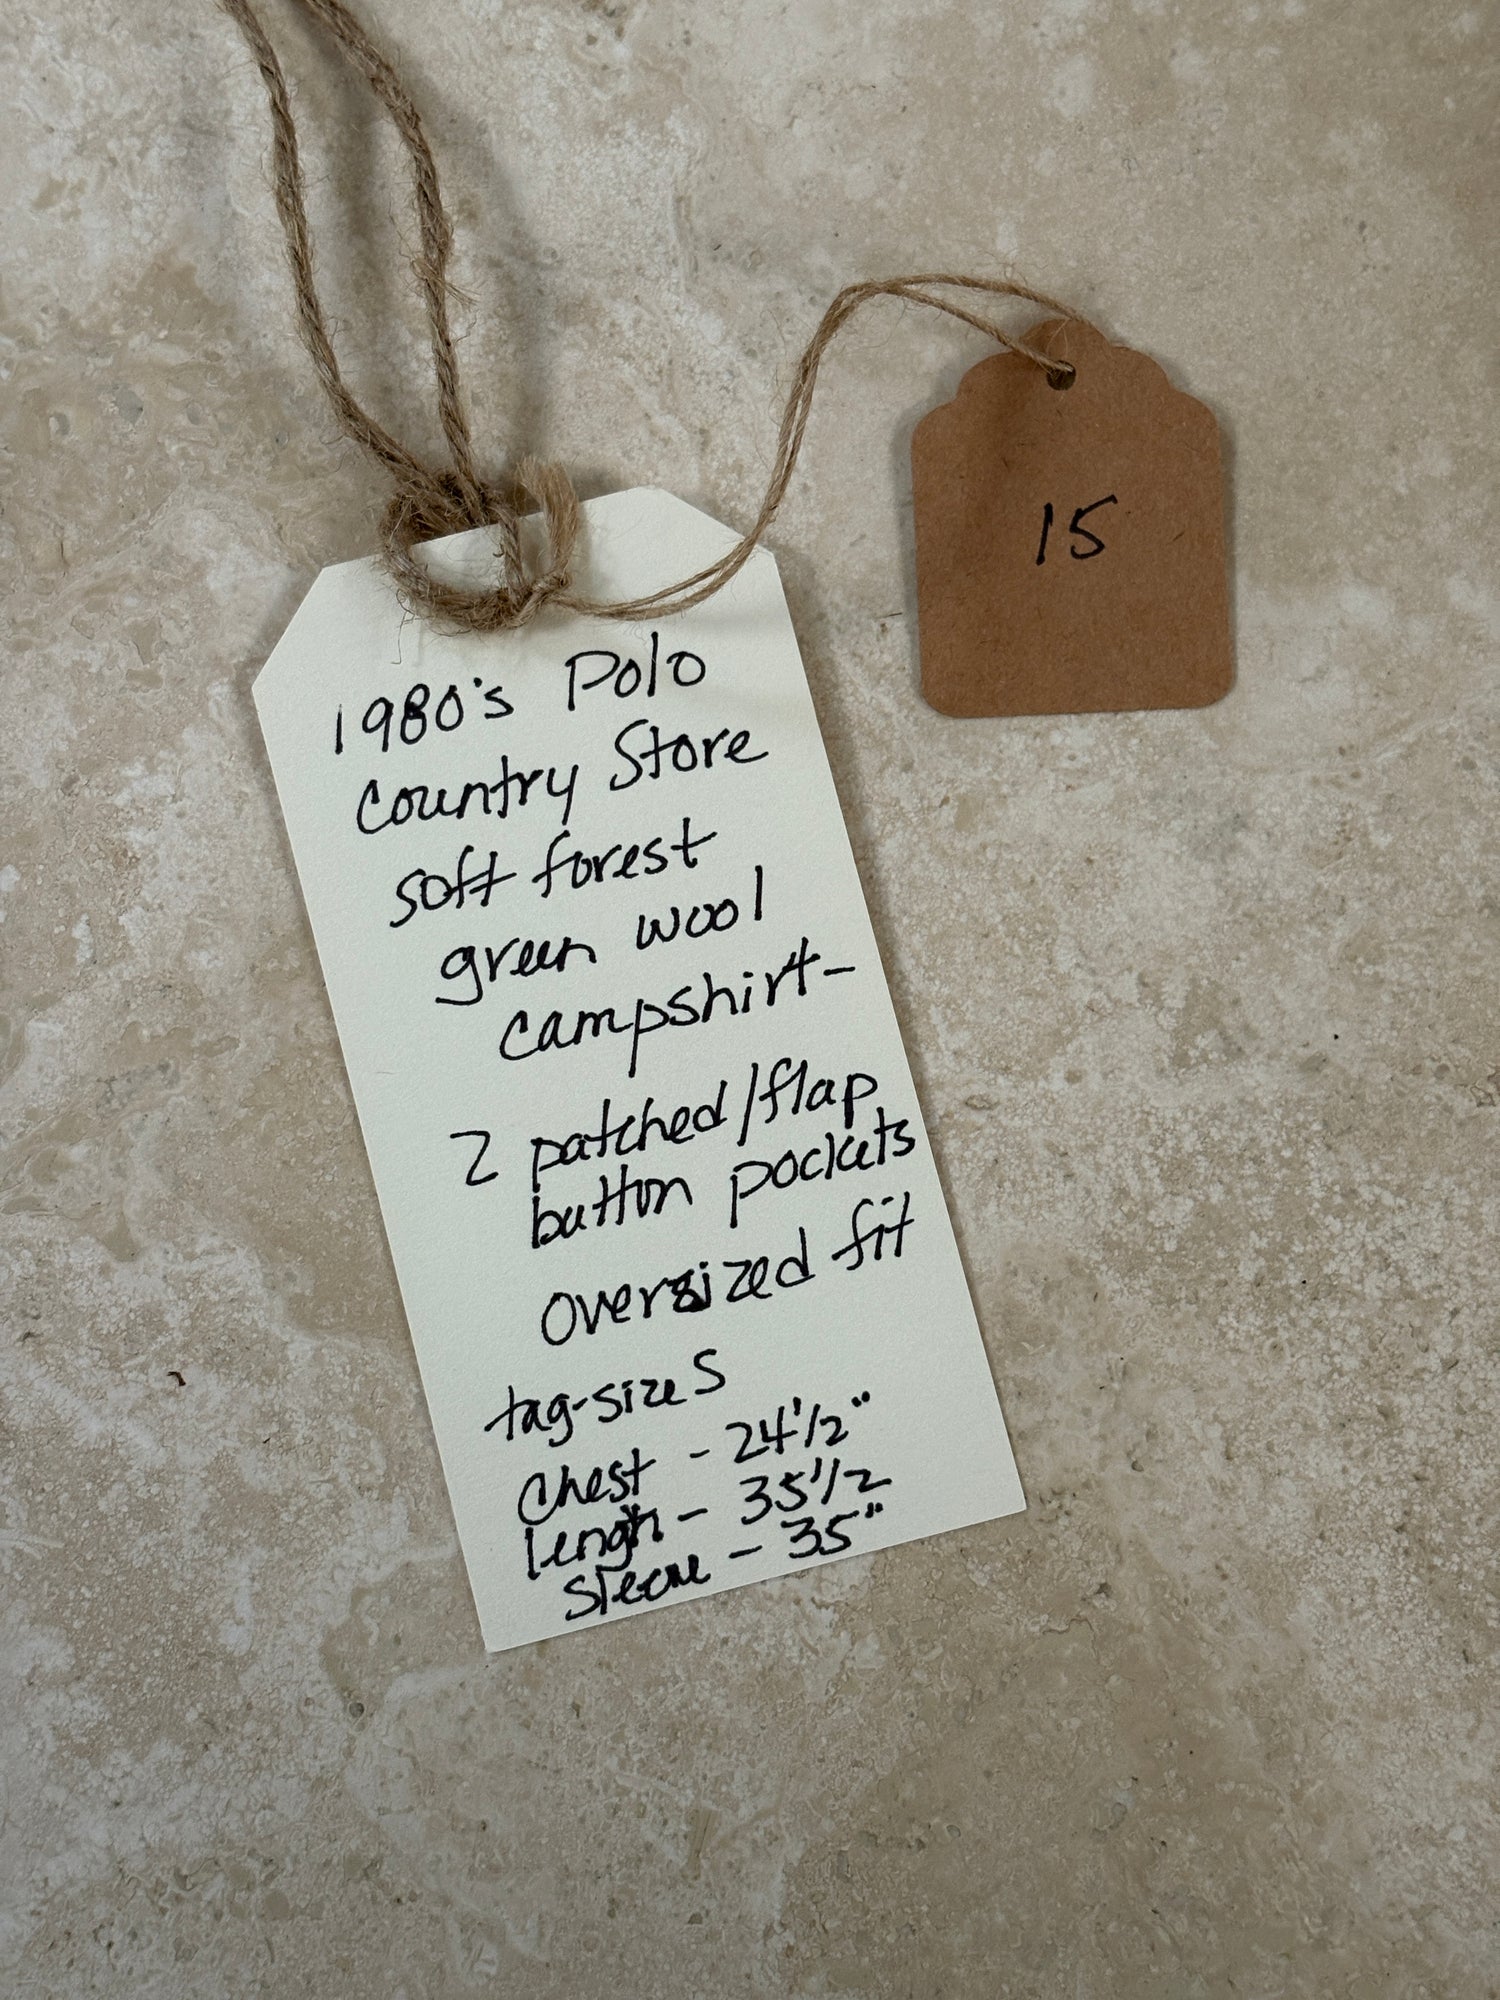 1980's Polo
Country Store
soft forest
green wool
campshirt-
2 patched/flap
button pockets
oversized fit
tag-size S
Chest - 24 1/2"
length - 35 1/2
sleeve - 35"
15